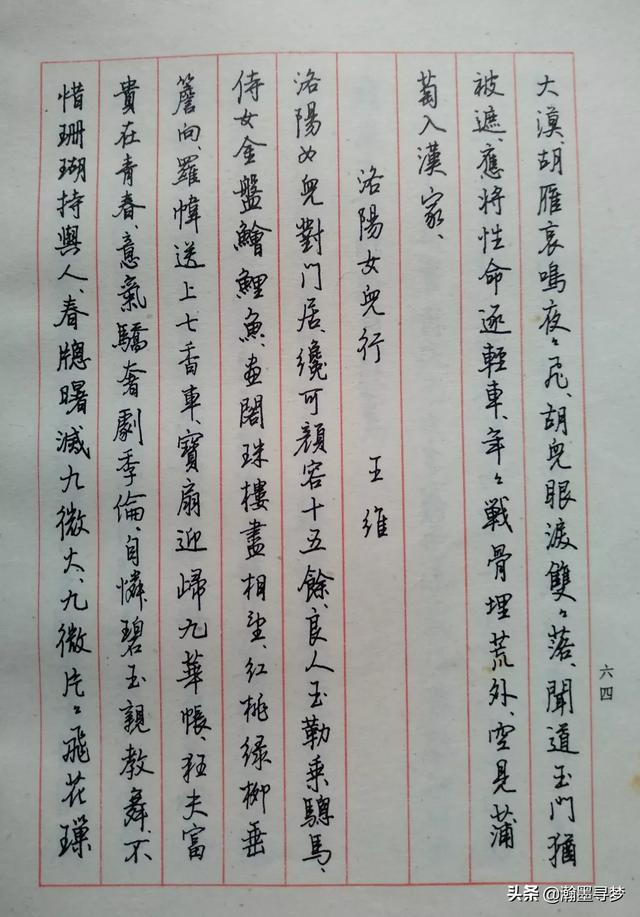 大漠、胡雁哀鳴夜〻飛、胡兒眼淚雙〻落、聞道玉門猶
被遮、應將性命逐輕車、年〻戰骨埋荒外、空見蒲
萄入漢家、
洛陽女兒行　王維
洛陽女兒對門居、纔可顏容十五餘、良人玉勒乘驄馬、
侍女金盤鱠鯉魚、畫閣珠樓盡相望、紅桃綠柳垂
簷向、羅幃送上七香車、寶扇迎歸九華帳、狂夫富
貴在青春、意氣驕奢劇季倫、自憐碧玉親教舞、不
惜珊瑚持與人、春牕曙滅九微火、九微片〻飛花璅
六四
头条 @瀚墨寻梦